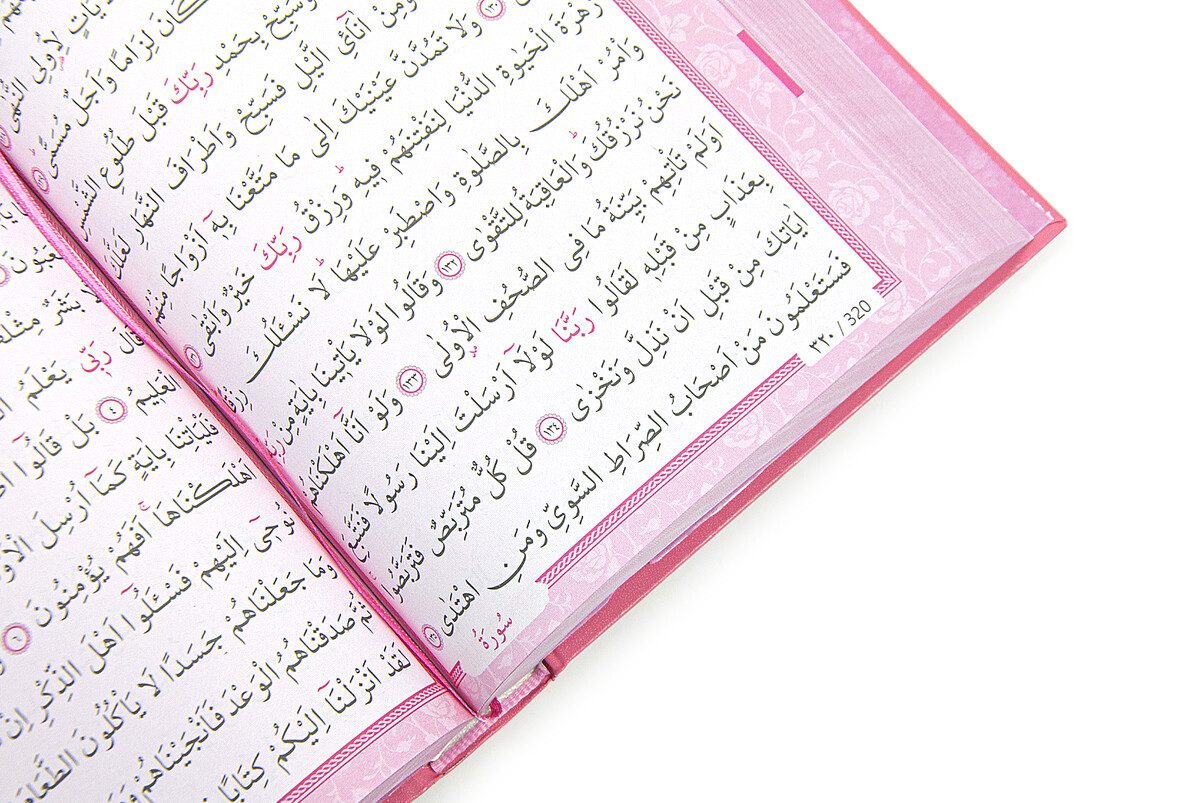 لِاُولِى النُّهٰى
كَانَ لِزَامًا وَاَجَلٌ مُسَمًّى ١٢٩
وَسَبِّحْ بِحَمْدِ رَبِّكَ قَبْلَ طُلُوعِ الشَّمْسِ
وَمِنْ اٰنَٓائِ الَّيْلِ فَسَبِّحْ وَاَطْرَافَ النَّهَارِ لَعَلَّكَ
١٣٠ وَلَا تَمُدَّنَّ عَيْنَيْكَ اِلٰى مَا مَتَّعْنَا بِهٓ اَزْوَاجًا مِنْهُمْ
زَهْرَةَ الْحَيٰوةِ الدُّنْيَا لِنَفْتِنَهُمْ فِيهِ وَرِزْقُ رَبِّكَ خَيْرٌ وَاَبْقٰى ١٣١
وَأْمُرْ اَهْلَكَ بِالصَّلٰوةِ وَاصْطَبِرْ عَلَيْهَا لَا نَسْـَٔلُكَ رِزْقًا
نَحْنُ نَرْزُقُكَ وَالْعَاقِبَةُ لِلتَّقْوٰى ١٣٢ وَقَالُوا لَوْلَا يَأْتِينَا بِاٰيَةٍ مِنْ رَبِّهِ
اَوَلَمْ تَأْتِهِمْ بَيِّنَةُ مَا فِى الصُّحُفِ الْاُولٰى ١٣٣ وَلَوْ اَنَّٓا اَهْلَكْنَاهُمْ
بِعَذَابٍ مِنْ قَبْلِهِ لَقَالُوا رَبَّنَا لَوْلَٓا اَرْسَلْتَ اِلَيْنَا رَسُولًا فَنَتَّبِعَ
اٰيَاتِكَ مِنْ قَبْلِ اَنْ نَذِلَّ وَنَخْزٰى ١٣٤ قُلْ كُلٌّ مُتَرَبِّصٌ فَتَرَبَّصُوا
فَسَتَعْلَمُونَ مَنْ اَصْحَابُ الصِّرَاطِ السَّوِيِّ وَمَنِ اهْتَدٰى ١٣٥
٣٢٠ / 320
سُورَةُ
بَشَرٌ
قَالَ رَبِّى يَعْلَمُ
الْعَلِيمُ ٤ بَلْ قَالُٓوا
فَلْيَأْتِنَا بِاٰيَةٍ كَمَٓا اُرْسِلَ
اَهْلَكْنَاهَا اَفَهُمْ يُؤْمِنُونَ ٦
نُوحِٓى اِلَيْهِمْ فَسْـَٔلُٓوا اَهْلَ الذِّكْرِ اِنْ
وَمَا جَعَلْنَاهُمْ جَسَدًا لَا يَأْكُلُونَ الطَّعَامَ
ثُمَّ صَدَقْنَاهُمُ الْوَعْدَ فَاَنْجَيْنَاهُمْ
لَقَدْ اَنْزَلْنَٓا اِلَيْكُمْ كِتَابًا